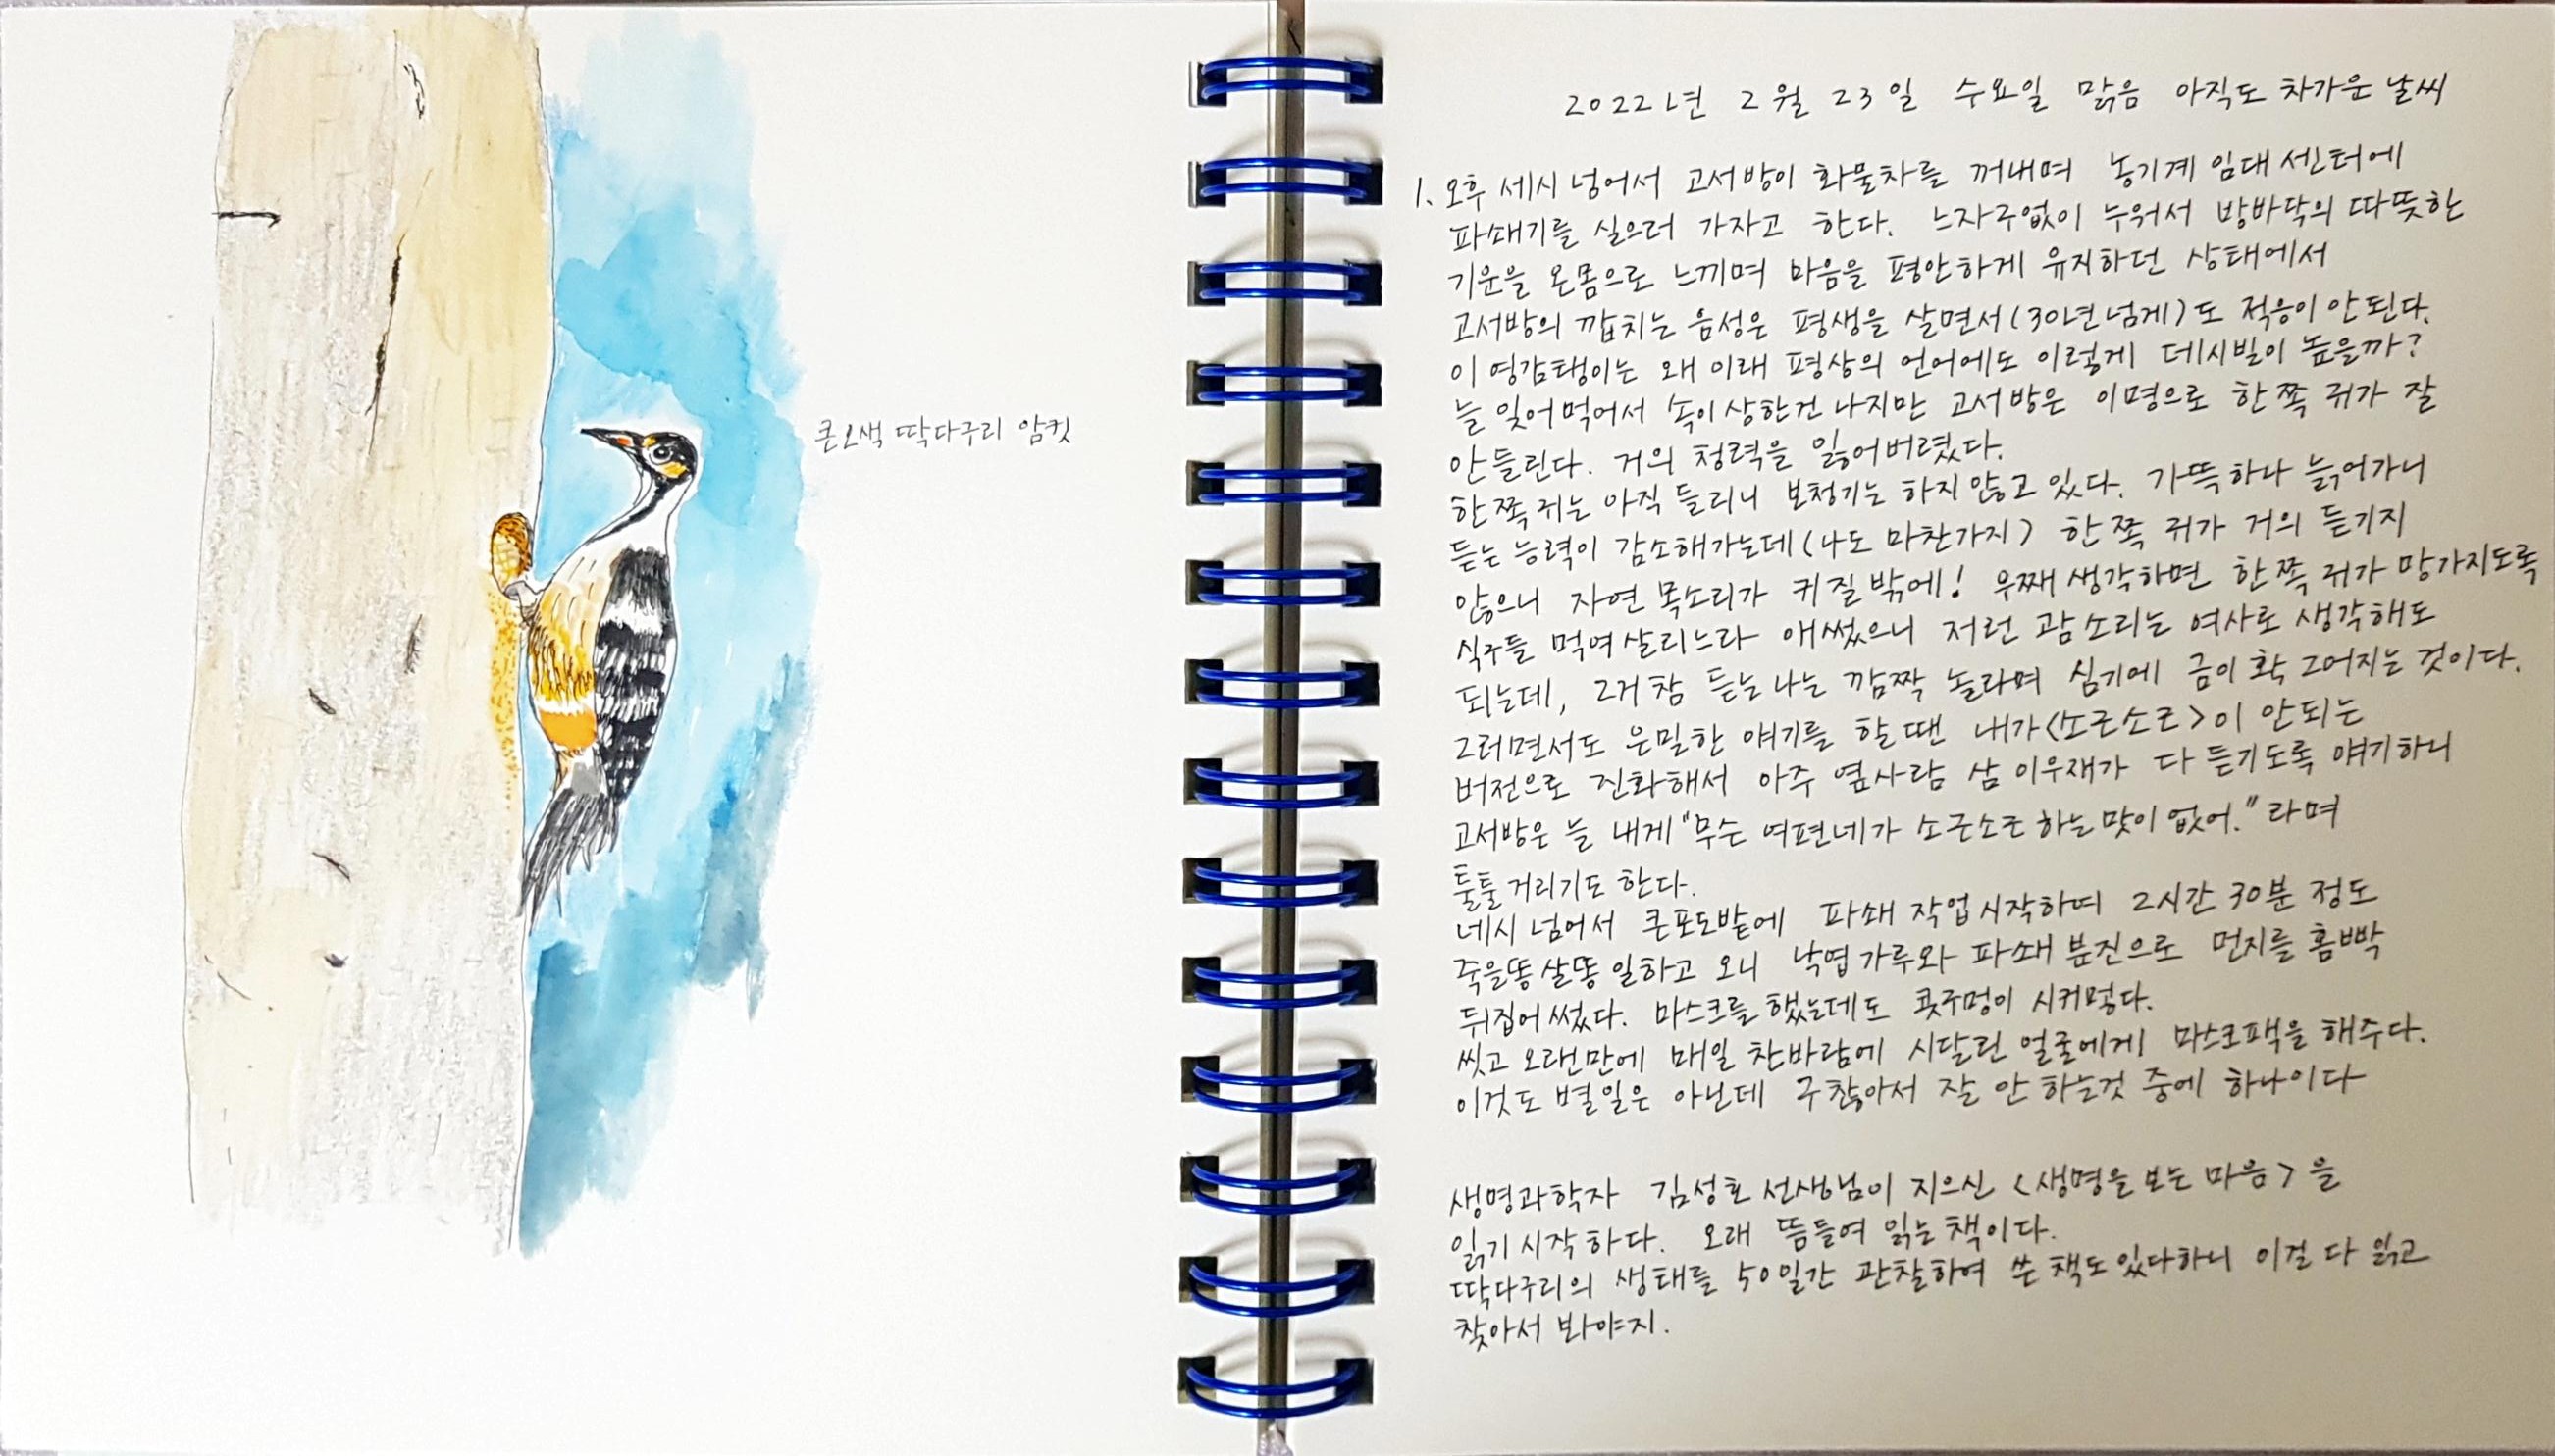 큰오색 딱다구리 암컷
2022년 2월 23일 수요일 맑음 아직도 차가운 날씨
1. 오후 세시 넘어서 고서방이 화물차를 꺼내며 농기계 임대 센터에
파쇄기를 실으러 가자고 한다. 느자구없이 누워서 방바닥의 따뜻한
기운을 온몸으로 느끼며 마음을 평안하게 유지하던 상태에서
고서방의 깝치는 음성은 평생을 살면서(30년넘게)도 적응이 안된다.
이 영감탱이는 왜 이래 평상의 언어에도 이렇게 데시빌이 높을까?
늘 잊어먹어서 속이상한건 나지만 고서방은 이명으로 한쪽 귀가 잘
안들린다. 거의 청력을 잃어버렸다.
한쪽귀는 아직 들리니 보청기는 하지않고 있다. 가뜩하나 늙어가니
듣는 능력이 감소해가는데(나도 마찬가지) 한쪽 귀가 거의 듣기지
않으니 자연 목소리가 커질밖에! 우째 생각하면 한쪽 귀가 망가지도록
식구들 먹여살리느라 애썼으니 저런 고함소리는 여사로 생각해도
되는데, 그거참 듣는나는 깜짝 놀라며 심기에 금이 확 그어지는 것이다.
그러면서도 은밀한 얘기를 할땐 내가<소근소근>이 안되는
버전으로 진화해서 아주 옆사람 삼이우재가 다 듣기도록 얘기하니
고서방은 늘 내게 "무슨 여편네가 소근소근 하는맛이 없어." 라며
툴툴거리기도 한다.
네시 넘어서 큰포도밭에 파쇄 작업시작하여 2시간 30분 정도
죽을똥살똥 일하고 오니 낙엽가루와 파쇄 분진으로 먼지를 홈빡
뒤집어썼다. 마스크를 했는데도 콧구멍이 시커멓다.
씻고 오랜만에 매일 찬바람에 시달린 얼굴에게 마스크팩을 해주다.
이것도 별일은 아닌데 구찮아서 잘 안 하는것 중에 하나이다
생명과학자 김성호선생님이 지으신 <생명을 보는 마음>을
읽기 시작하다. 오래 뜸들여 읽는 책이다.
딱다구리의 생태를 50일간 관찰하여 쓴 책도있다하니 이걸 다 읽고
찾아서 봐야지.